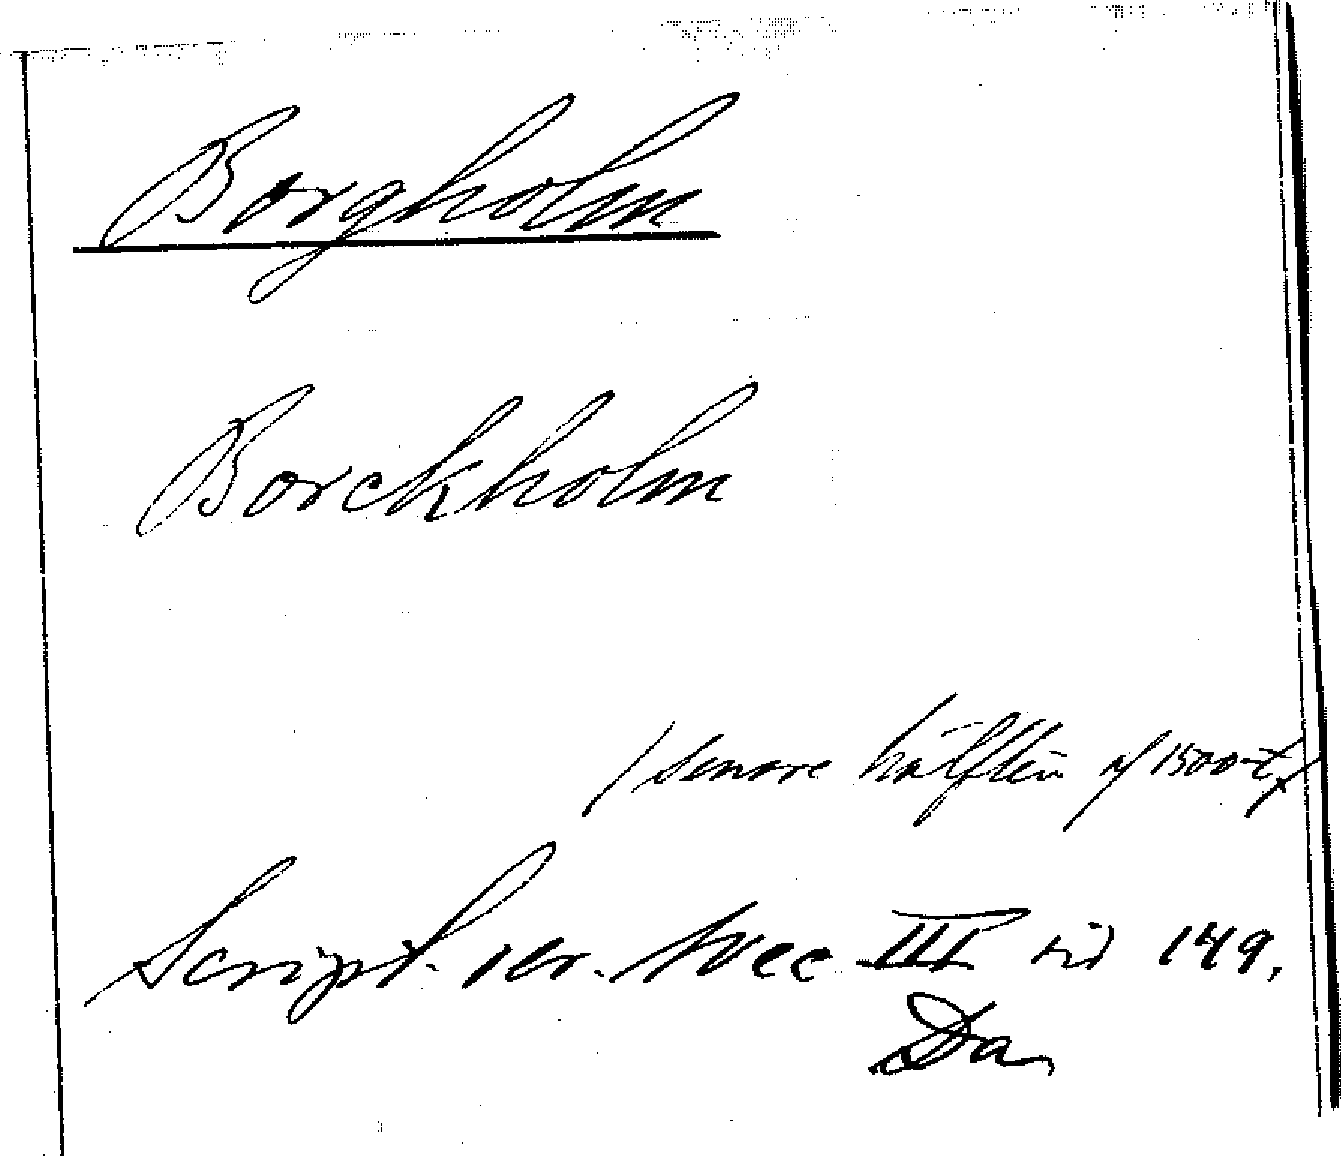 Borgholm
Borckholm
/senare hälften af 1500-t/
Script. rer. svec III sid 149.
Da